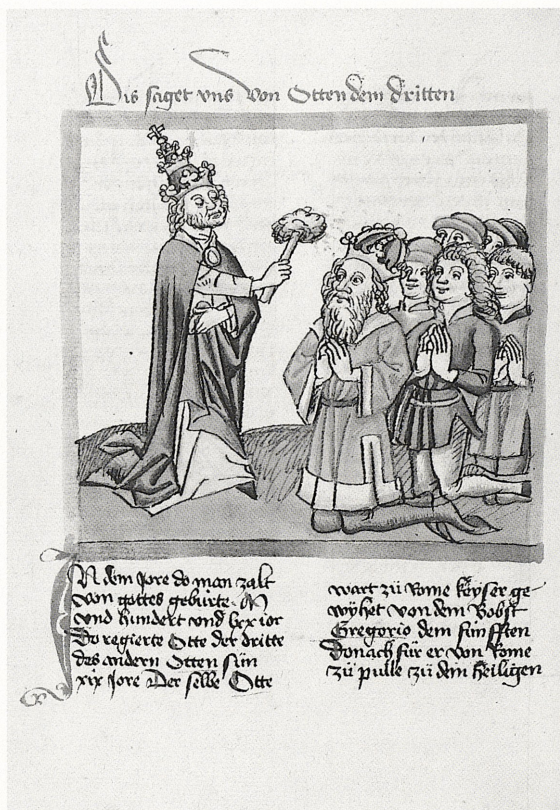 Dis saget vns von Otten dem dritten
In dem Jore do man zalt
von gottes gebürte M
vnd hundert vnd lxx ior
Do regierte Otte der dritte
des andern Otten sün
xix Jore Der selbe Otte
wart zü Rome keyser ge-
wyhet von dem Bobst
Gregorio dem fünfften
Donach für er von Rome
zü pulle zü dem heiligen